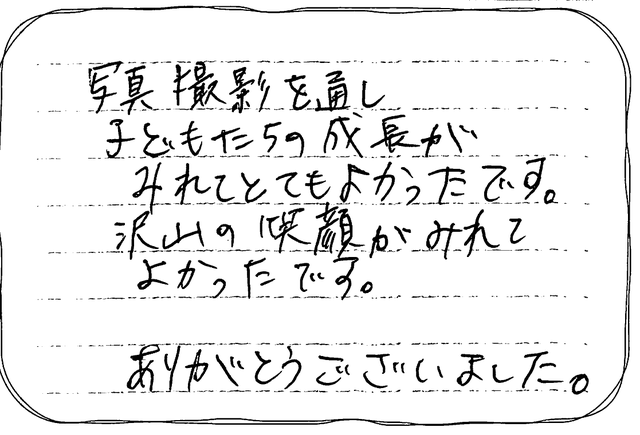 写真撮影を通し
子どもたちの成長が
みれてとてもよかったです。
沢山の笑顔がみれて
よかったです。
ありがとうございました。